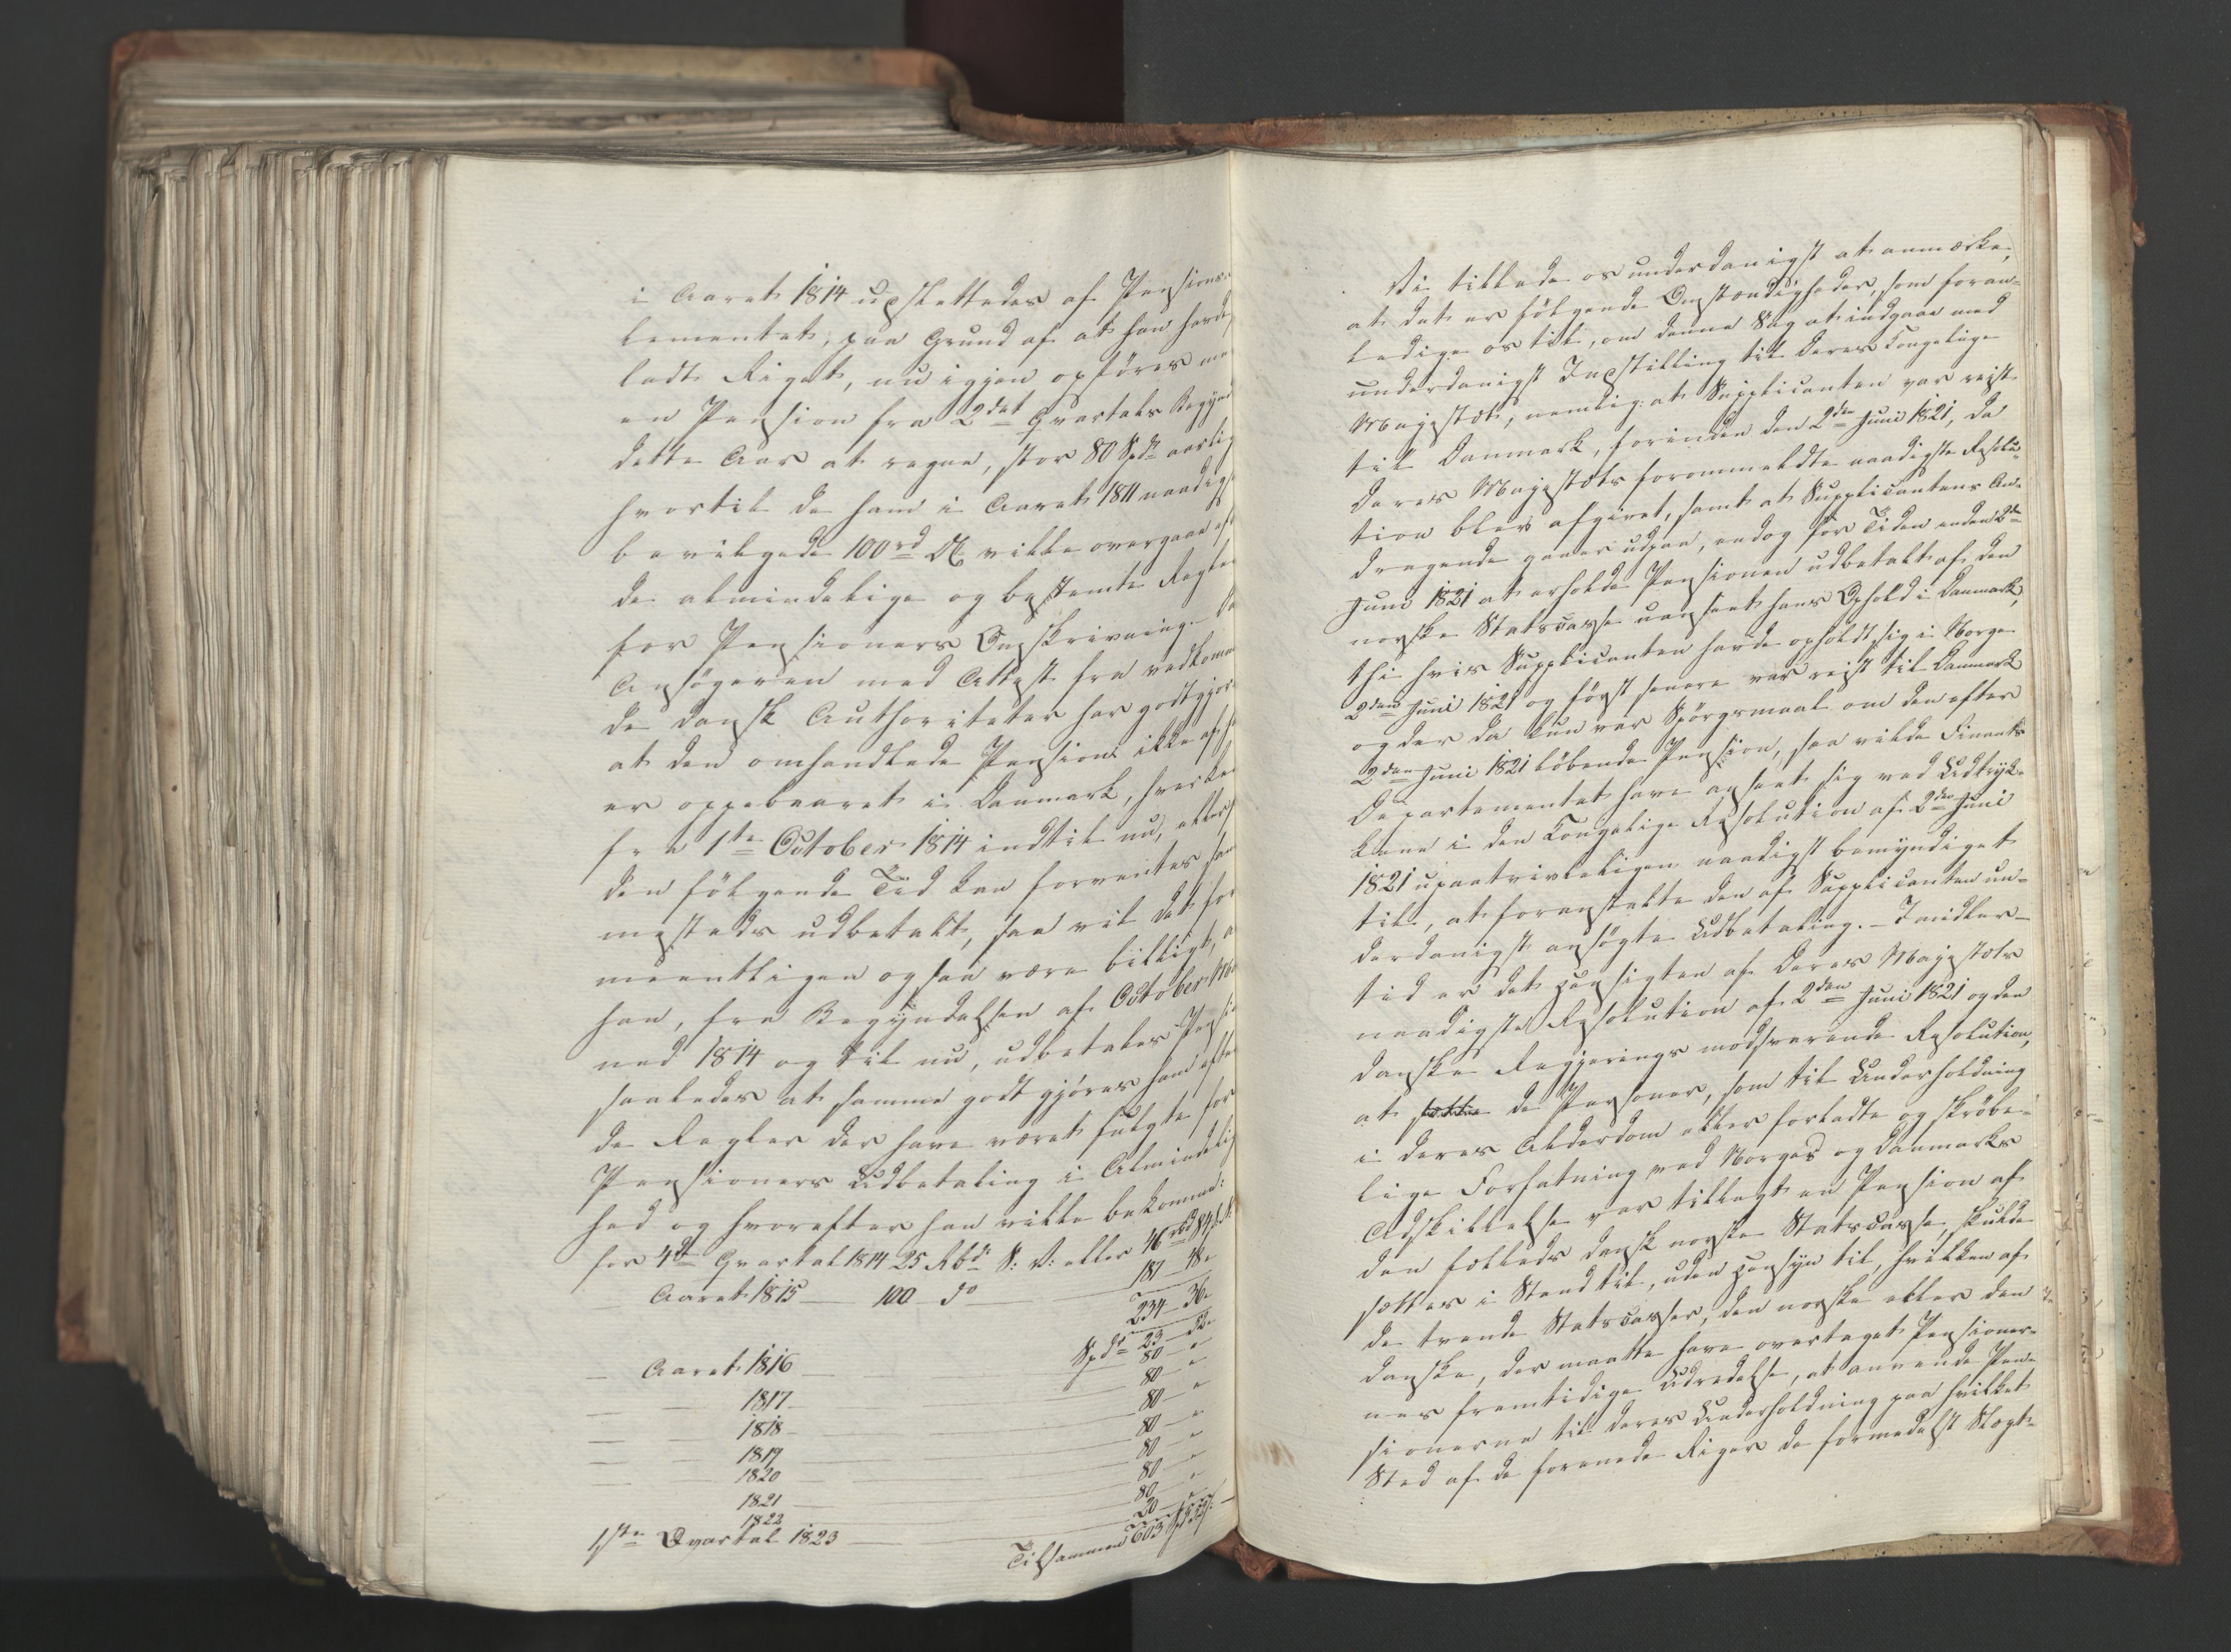 i Aaret 1814 udslettedes af Pensions-
lementet, paa Grund af at han havde
ladt Riget, nu igjen opføres me
en Pension fra 2det Qvartals Begynd
dette Aar at regne, stor 80 Spd aarlig
hvortil de ham i Aaret 1811 naadigst
bevilgede 100 rd DC vilde overgaae ef
de almindelige og bestemte Regler
for Pensioners Omskrivning. Da
Ansøgeren med Attest fra vedkomm
de dansk Authoriteter har godtgjort
at den omhandlede Pension ikke af h
er oppebaaret i Danmark, hverken
fra 1ste October 1814 indtil nu, eller i
den følgende Tid kan forventes sam
mesteds udbetalt, saa vil det for
meentligen ogsaa være billigt, a
han, fra Begyndelsen af October Ma
ned 1814 og til nu, udbetales Pensio
saaledes at samme godtgjøres ham efter
de Regler der have været fulgte for
Pensioners Udbetaling i Almindelig
hed og hvorefter han vilde bekomme:
for 4de Qvartal 1814 25 Rbd. S: V: eller 46 rbd 84 s.
Aaret 1815 — 100 — do — 187 — 48 "
234 — 36 "
Spd 23 — 52 "
— Aaret 1816 — 80 — "
— — 1817 — 80 — "
— — 1818 — 80 — "
— — 1819 — 80 — "
— 1820 — 80 — "
1821 — 80 — "
1822 — 80 — "
1ste Qvartal 1823 — 20 — "
Tilsammen 603 Spd 52 s. —
Vi tillade os underdanigst at anmærke,
at det er følgende Omstændigheder, som foran-
ledige os til, om denne Sag at indgaae med
underdanigst Indstilling til Deres Kongelige
Majestæt, nemlig: at Supplicanten var reist
til Danmark, forinden den 2den Juni 1821, da
Deres Majestæts forommeldte naadigste Resolu-
tion blev afgivet, samt at Supplicantens An-
dragende gaaer udpaa, endog for Tiden inden 2de
Juni 1821 at erholde Pensionen udbetalt af den
norske Statscasse uanseet hans Ophold i Danmark,
thi hvis Supplicanten havde opholdt sig i Norge
2den Juni 1821 og først senere var reist til Danmark
og der da kun var Spørgsmaal om den efter
2den Juni 1821 løbende Pension, saa vilde Finants
Departementet have anseet sig ved Udtryk-
kene i den Kongelige Resolution af 2den Juni
1821 upaatvivleligen naadigst bemyndiget
til, at foranstalte den af Supplicanten un-
derdanigst ansøgte Udbetaling. — Imidler-
tid er det Hensigten af Deres Majestæts
naadigste Resolution af 2den Juni 1821 og den
danske Regjerings modsvarende Resolution,
at sætte de Personer, som til Underholdning
i deres Alderdom eller forladte og skrøbe-
lige Forfatning ved Norges og Danmarks
Adskillelse var tillagt en Pension af
den fælleds dansk norske Statscasse, skulde
sættes i Stand til, uden Hensyn til, hvilken af
de tvende Statscasser, den norske eller den
danske, der maatte have overtaget Pensioner-
nes fremtidige Udredelse, at anvende Pen-
sionerne til deres Underholdning paa hvilket
Sted af de forenede Riger de formedelst Slægt-